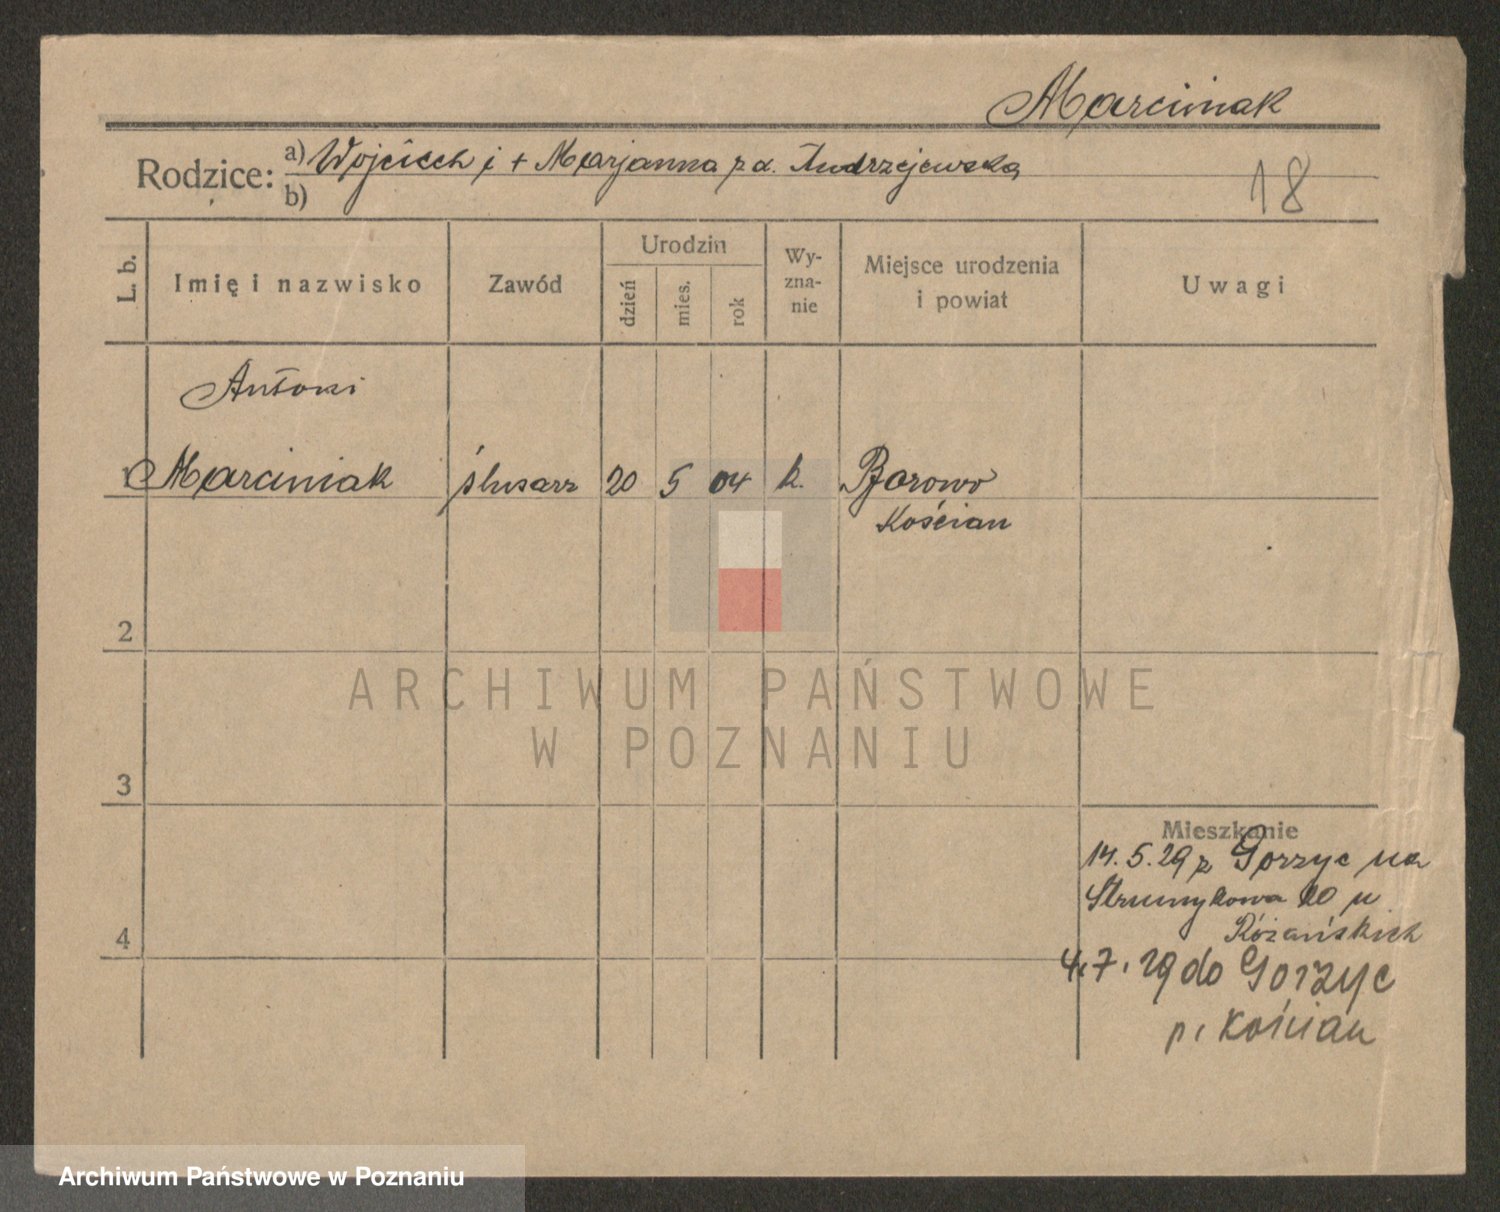 Marciniak
Rodzice: a) Wojciech i + Marjanna z d. Andrzejewska
b)
18
L. b.
Imię i nazwisko
Zawód
Urodzin
dzień
mies.
rok
Wy-
zna-
nie
Miejsce urodzenia
i powiat
Uwagi
Antoni
1 Marciniak ślusarz 20 5 04 k. Borowo
Kościan
2
ARCHIWUM PAŃSTWOWE
W POZNANIU
3
Mieszkanie
14.5.29 z Gorzyc na
Strumykowa 20 u
Różańskich
4
4.7.29 do Gorzyc
p. Kościan
Archiwum Państwowe w Poznaniu